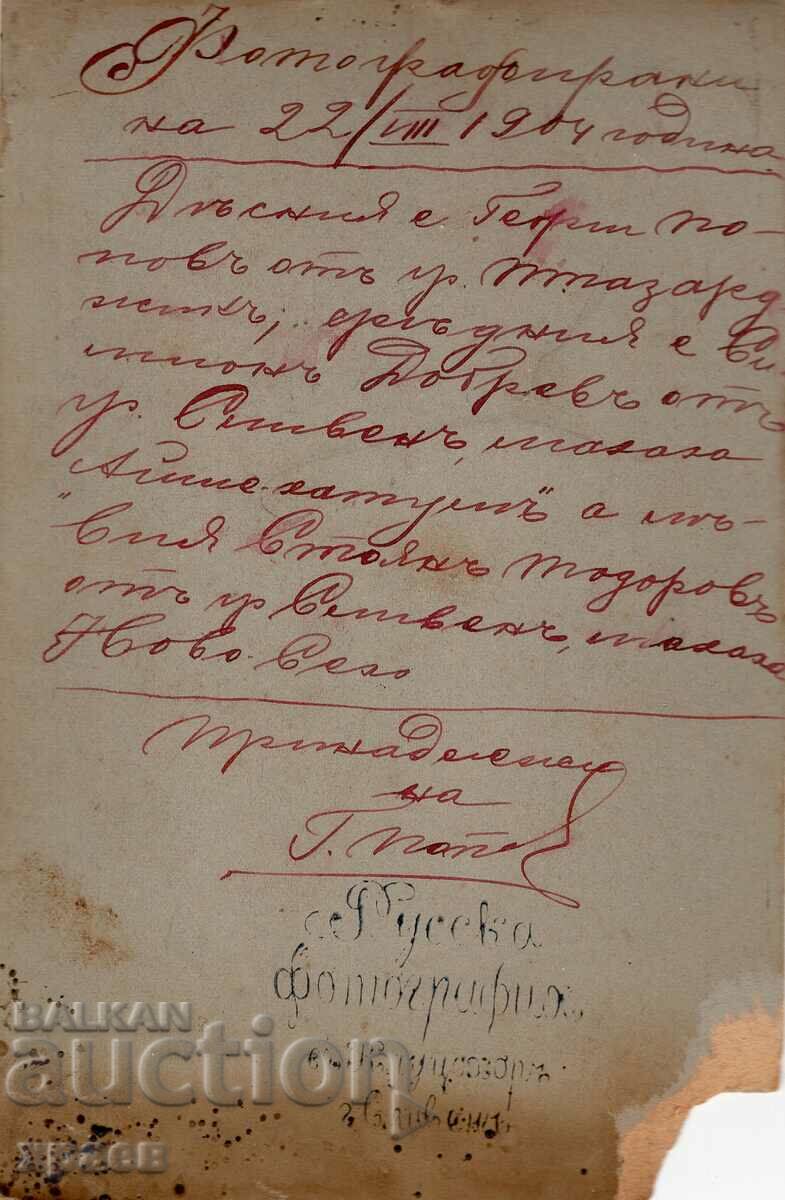 Фотографирани
на 22/VIII 1904 година
Дѣсния е Георги По-
повъ отъ гр. Т Пазард
жикъ, срѣдния е Си-
мионъ Добревъ отъ
гр. Сливенъ, махала
"Айше хатунъ" а лѣ-
вия Стоянъ Тодоровъ
отъ гр Сливенъ, махала
Ново Село
Принадлежи
на
Г. Попов
Русска
фотография
Сливенъ
BALKAN
auction
храев